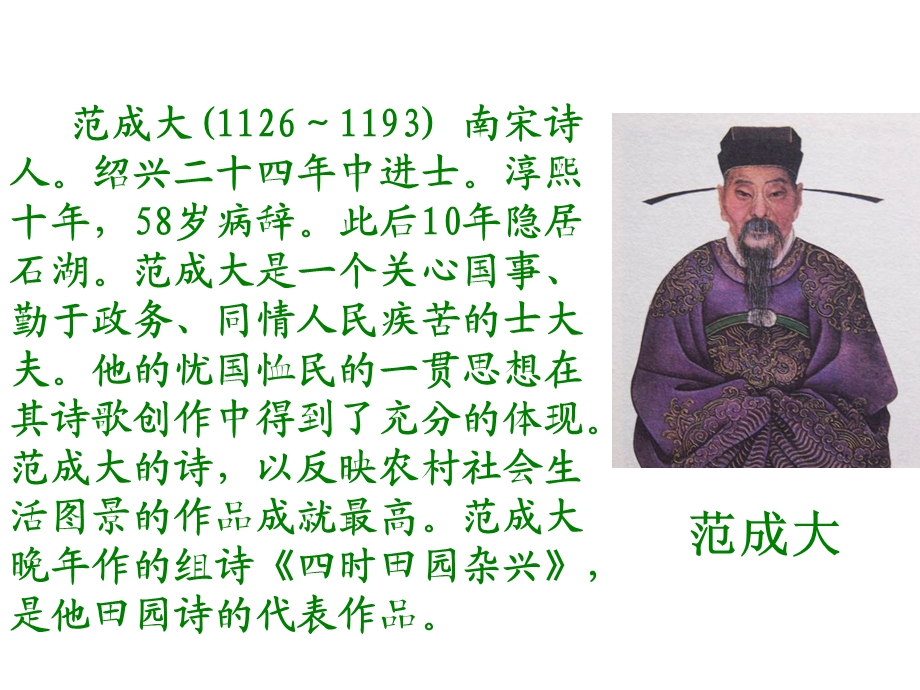 范成大(1126～1193) 南宋诗
人。绍兴二十四年中进士。淳熙
十年，58岁病辞。此后10年隐居
石湖。范成大是一个关心国事、
勤于政务、同情人民疾苦的士大
夫。他的忧国恤民的一贯思想在
其诗歌创作中得到了充分的体现。
范成大的诗，以反映农村社会生
活图景的作品成就最高。范成大
晚年作的组诗《四时田园杂兴》，
是他田园诗的代表作品。
范成大